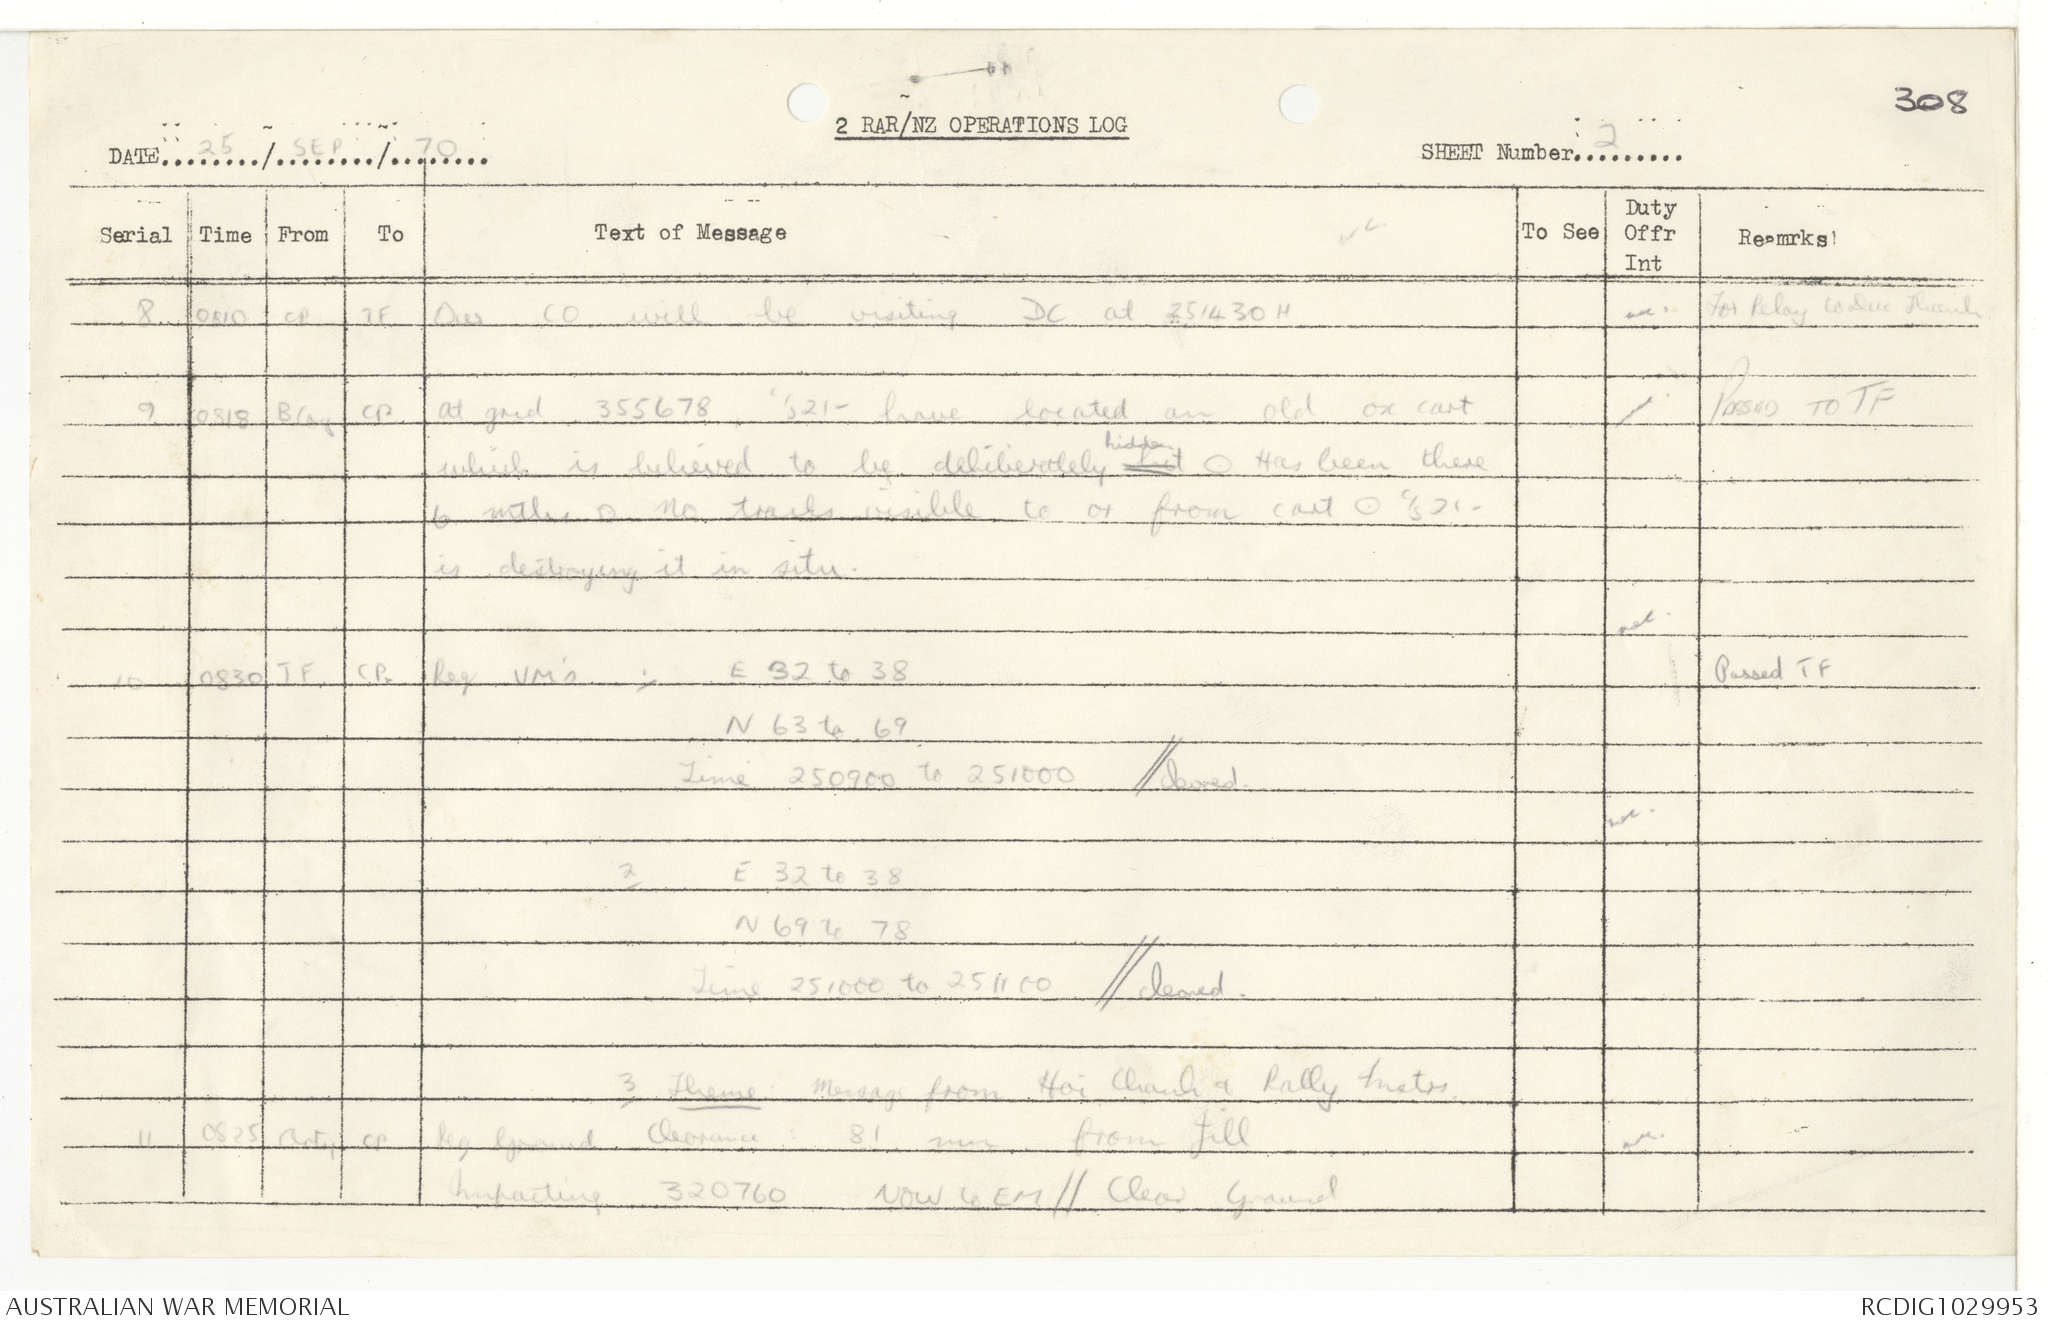 308
2 RAR/NZ OPERATIONS LOG
DATE 25 / SEP / 70
SHEET Number 2
Serial Time From To Text of Message To See Duty Offr Int Remarks
8 0810 CP TF Our CO will be visiting DC at 251430H For Relay to Duc Thanh
9 0818 B Coy CP At grid 355678, C/S 21- have located an old ox cart PASSED TO TF
which is believed to be deliberately hidden O Has been there
6 mths O No tracks visible to or from cart O C/S 21-
is destroying it in situ.
10 0830 TF CP Req VM's : E 32 to 38 Passed TF
N 63 to 69
Time 250900 to 251000 // Cleared.
2 E 32 to 38
N 69 to 78
Time 251000 to 251100 // Cleared.
3 Theme: Message from Hoi Chanh & Rally Instrs.
11 0825 Arty CP Req Ground Clearance : 81 mm from Jill
Impacting 320760 NOW to EM // Clear Ground
AUSTRALIAN WAR MEMORIAL
RCDIG1029953